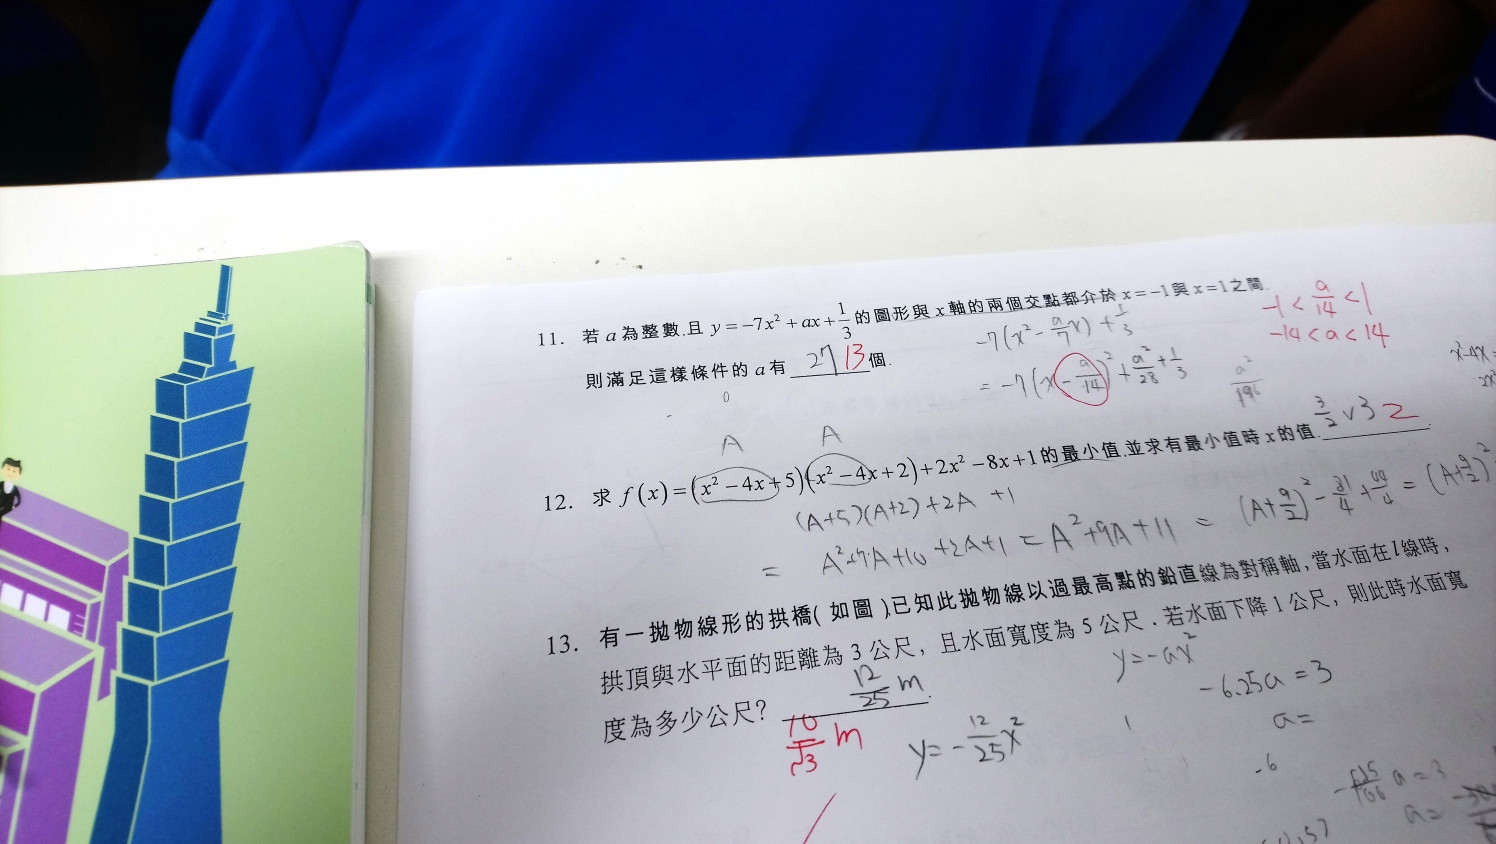 11. 若 a 為整數.且 y = −7x² + ax + 1/3 的圖形與 x 軸的兩個交點都介於 x = −1 與 x = 1 之間.
則滿足這樣條件的 a 有 27 13 個.
-7(x² - a/7 x) + 1/3
= -7(x - a/14)² + a²/28 + 1/3
a²/196
-1 < a/14 < 1
-14 < a < 14
12. 求 f(x) = (x² − 4x + 5)(x² − 4x + 2) + 2x² − 8x + 1 的最小值.並求有最小值時 x 的值. 2
A A
(A+5)(A+2)+2A +1
= A²+7A+10+2A+1 = A²+9A+11 = (A+9/2)² - 81/4 + 44/4 = (A+9/2)²
13. 有一拋物線形的拱橋( 如圖 ).已知此拋物線以過最高點的鉛直線為對稱軸,當水面在 l 線時,
拱頂與水平面的距離為 3 公尺, 且水面寬度為 5 公尺 . 若水面下降 1 公尺, 則此時水面寬
度為多少公尺? 12/25 m.
10/√3 m
y=-12/25x²
y=-ax²
-6.25a = 3
a=
-6